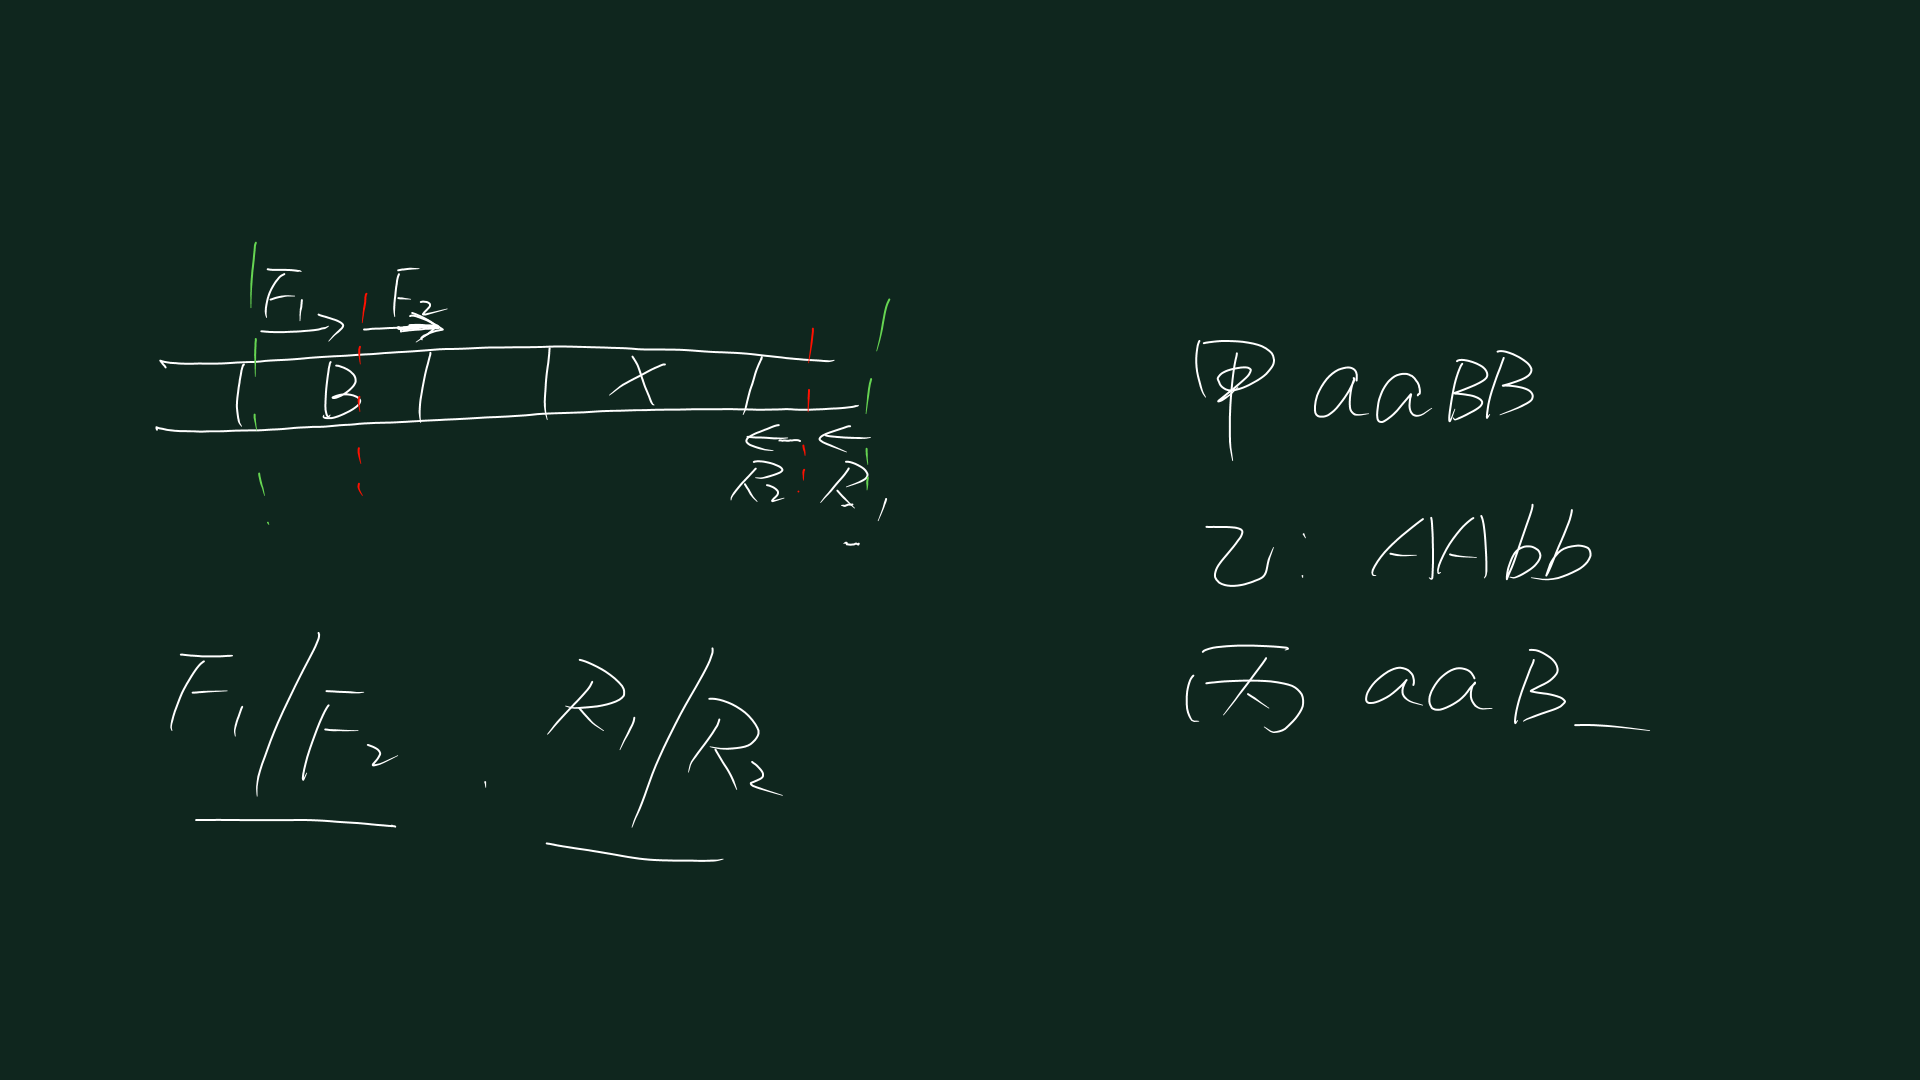 F₁ F₂
B X
R₂ R₁
F₁/F₂ . R₁/R₂
甲 aaBB
乙: AAbb
丙 aaB_